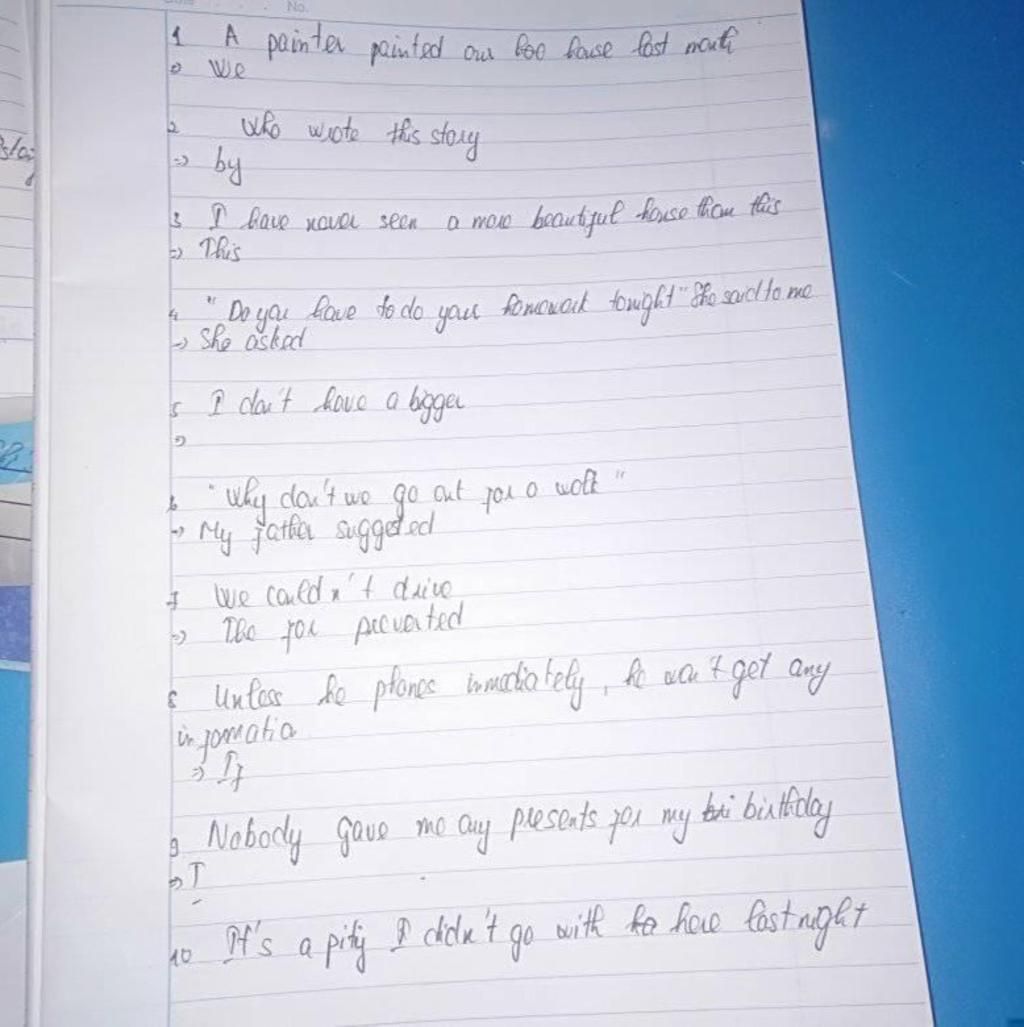 No.
1 A painter painted our house last month
⇒ We
2 Who wrote this story
⇒ by
3 I have never seen a more beautiful house than this
⇒ This
4 "Do you have to do your homework tonight" She said to me
⇒ She asked
5 I don't have a bigger
⇒
6 "Why don't we go out for a walk"
⇒ My father suggested
7 We couldn't drive
⇒ The prevented
8 Unless he phones immediately, he won't get any
informatio
⇒ If
9 Nobody gave me any presents for my birthday
⇒ I
10 It's a pity I didn't go with here last night